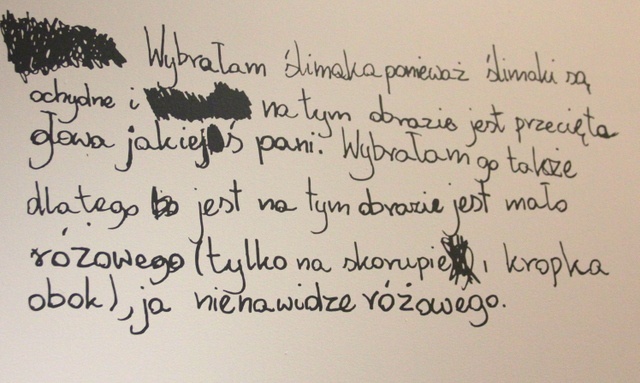 Wybrałam ślimaka ponieważ ślimaki są
ochydne i na tym obrazie jest przecięta
głowa jakiejś pani. Wybrałam go także
dlatego bo jest na tym obrazie jest mało
różowego (tylko na skorupie i kropka
obok), ja nienawidze różowego.